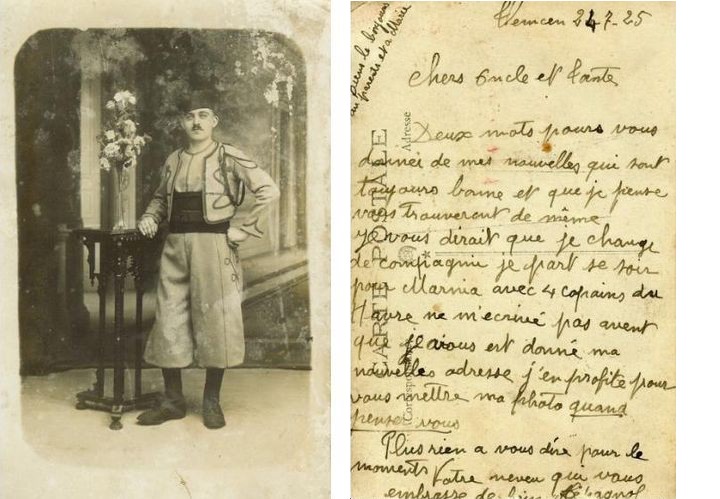 Tlemcen 24-7-25
bien le bonjour
au parents et a Marie
chers Oncle et Tante
Deux mots pours vous
donnée de mes nouvelles qui sont
toujours bonne et que je pense
vous trouveront de même
Je vous dirait que je change
de compagnie je part se soir
pour Marnia avec 4 copains du
Havre ne m'ecrivé pas avent
que je vous est donné ma
nouvelles adresse j'en profite pour
vous mettre ma photo quand
pensez vous
Plus rien a vous dire pour le
moments Votre neveu qui vous
embrasse de bien
CARTE POSTALE
Adresse
Correspondance